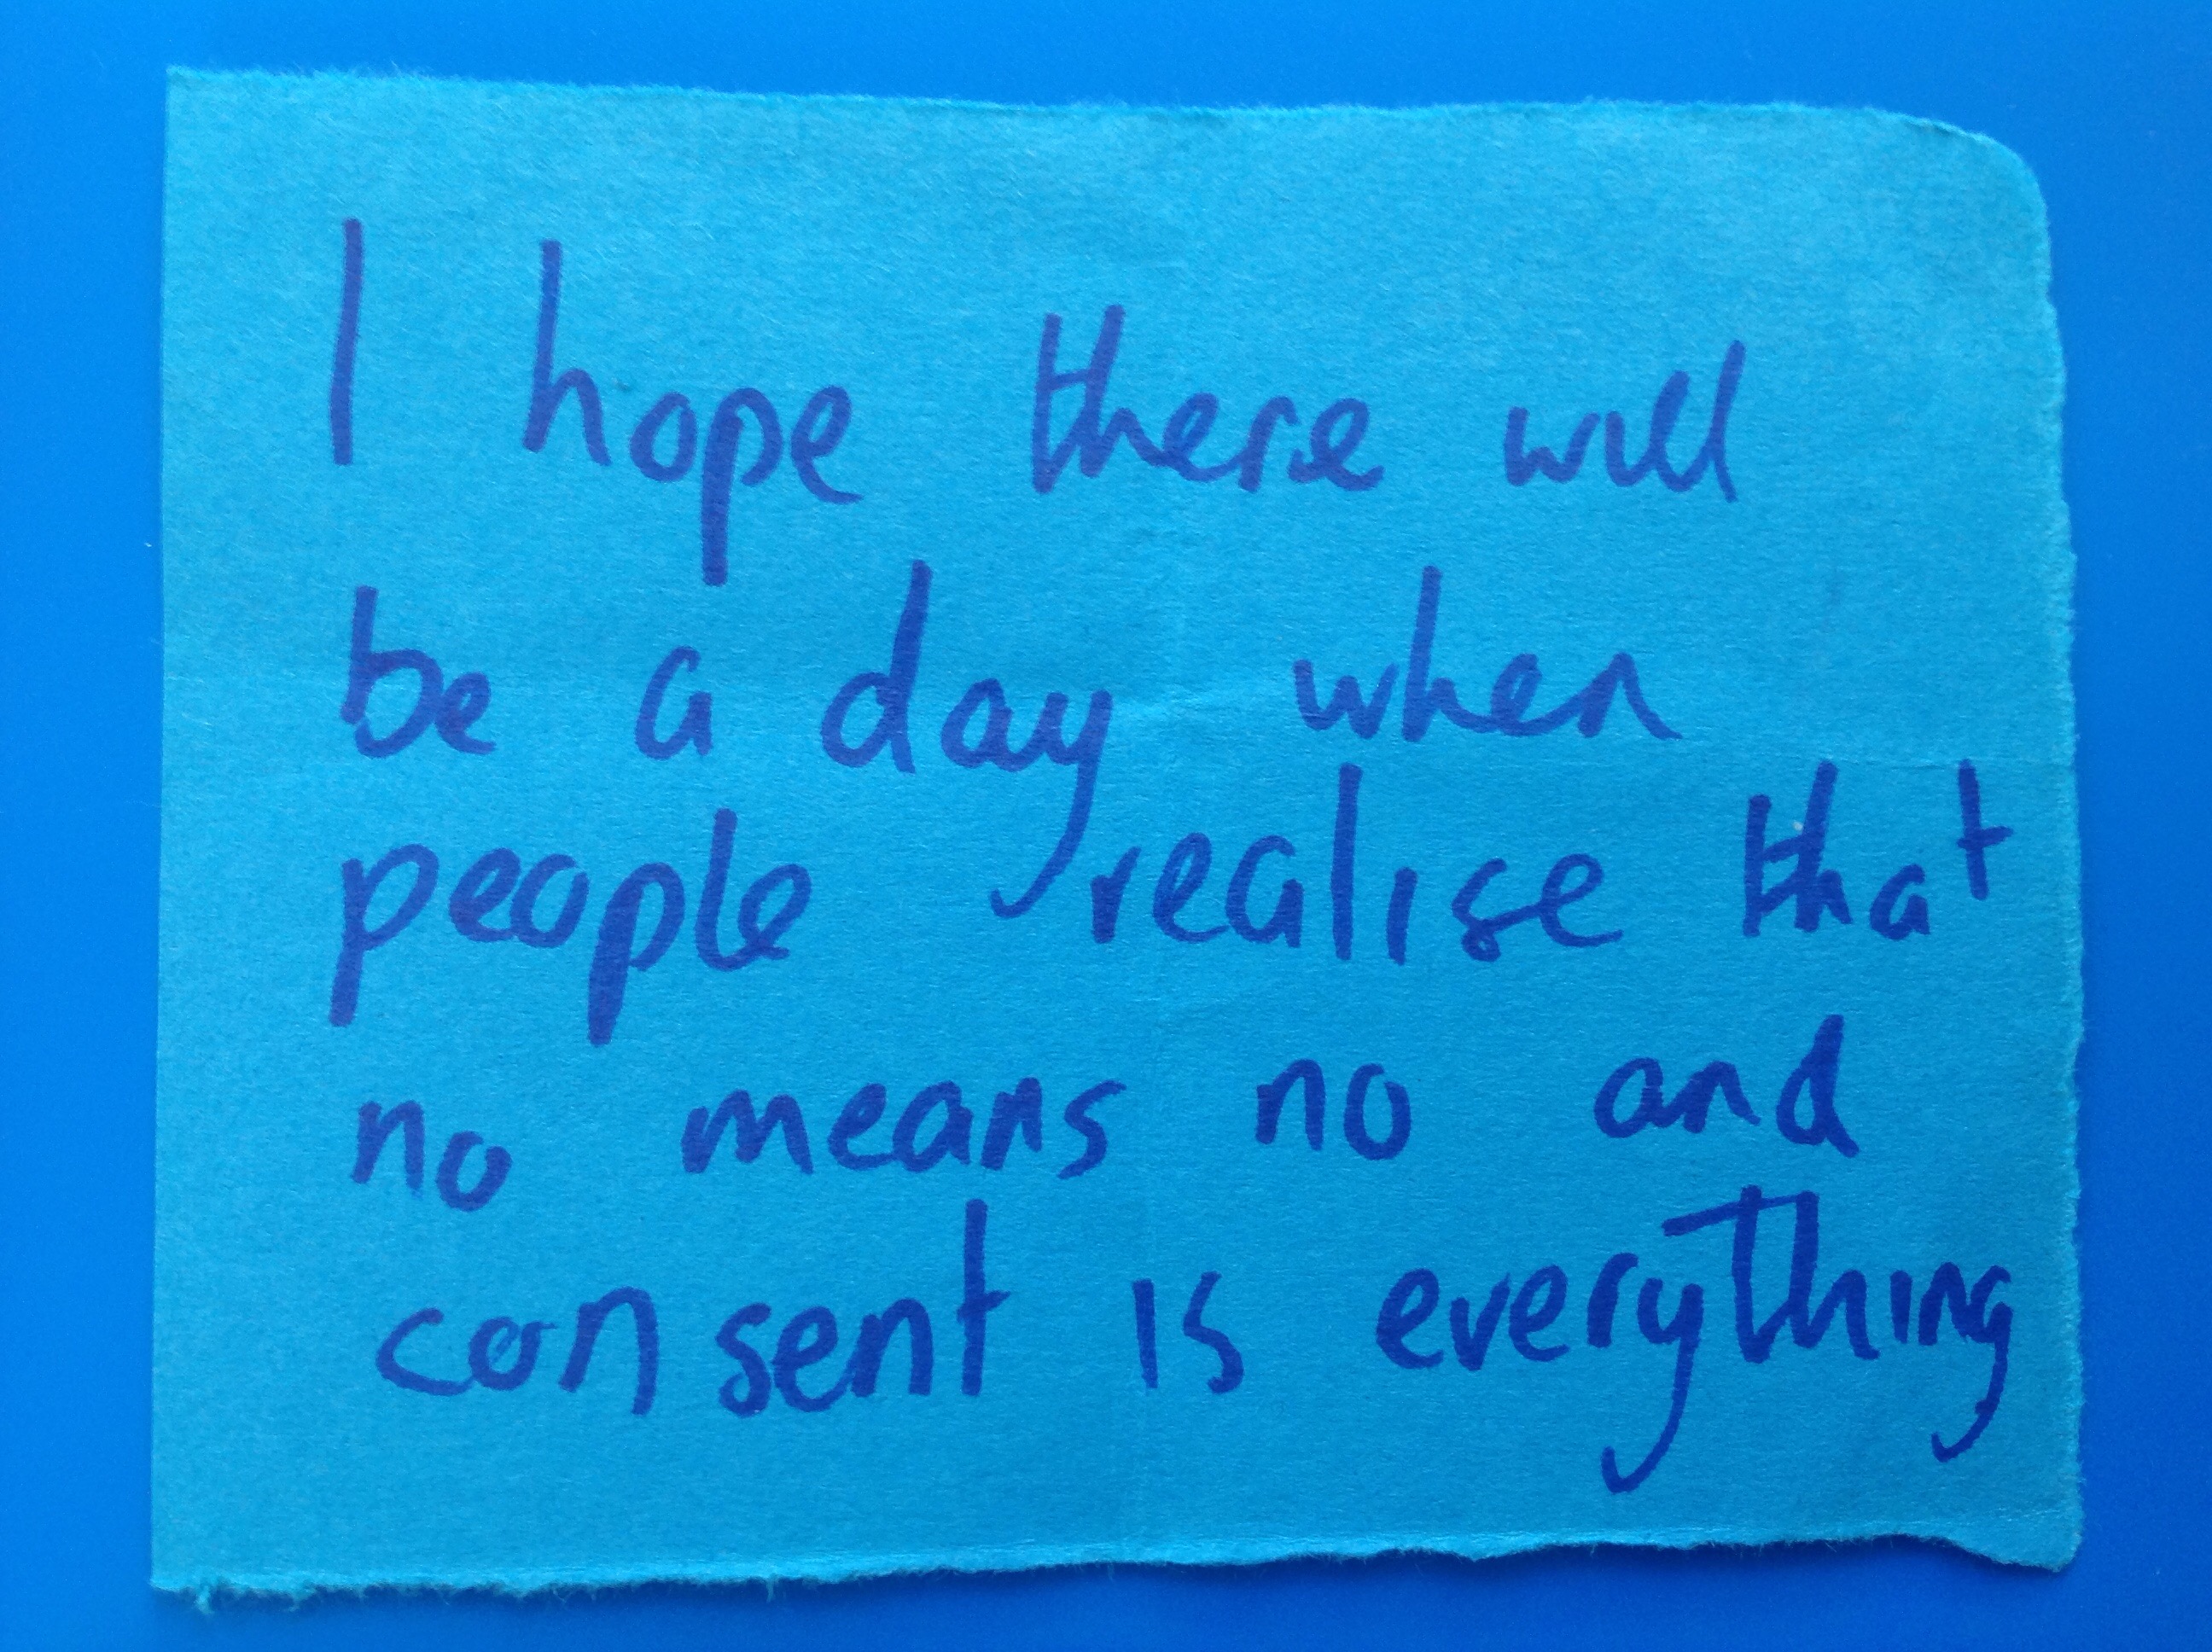 I hope there will
be a day when
people realise that
no means no and
consent is everything